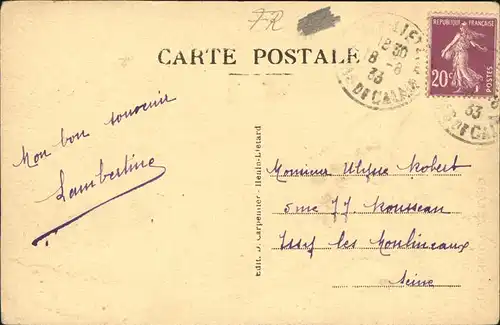 FR
CARTE POSTALE
REPUBLIQUE FRANÇAISE
20c
POSTES
18 30
8 - 8
33
DE CALAIS
33
DE CALA
Mon bon souvenir
Lambertine
Edit. D. Carpentier - Henin-Liétard
Monsieur Ulysse Robert
5 rue J J. Rousseau
Issy les Moulineaux
Seine